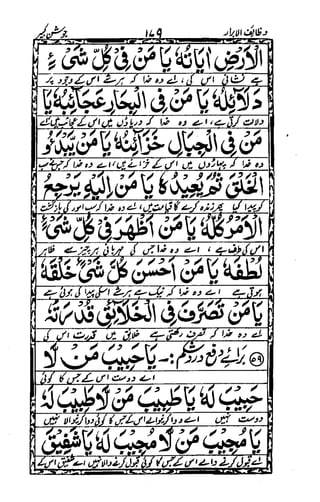 وظائف الابرار ۱۷۹ جوشن کبیر
الْاَرْضِ اٰیَاتُهٗ یَا مَنْ فِیْ كُلِّ شَیْءٍ
ہے نشانی اس کی، اے وہ خدا کہ ہر شے اس کے وجود پر
دَلَآئِلُهٗ یَا مَنْ فِی الْبِحَارِ عَجَآئِبُهٗ یَا
دلالت کرتی ہے، اے وہ خدا کہ دریاؤں میں اس کے عجائب ہیں اے
مَنْ فِی الْجِبَالِ خَزَآئِنُهٗ یَا مَنْ یَّبْدَءُ
وہ خدا کہ پہاڑوں میں اس کے خزانے ہیں، اے وہ خدا کہ
الْخَلْقَ ثُمَّ یُعِیْدُهٗ یَا مَنْ اِلَیْهِ یَرْجِعُ
کو پیدا کیا پھر زندہ کرے گا قیامت میں، اے وہ خدا کہ سب امور کی بازگشت
الْاَمْرُ كُلُّهٗ یَا مَنْ اَظْهَرَ فِیْ كُلِّ شَیْءٍ
اس کی طرف ہے، اے وہ خدا جس کی مہربانی ہر چیز سے ظاہر
لُطْفَهٗ یَا مَنْ اَحْسَنَ كُلَّ شَیْءٍ خَلْقَهٗ
ہوتی ہے، اے وہ خدا کہ نیک ہے ہر شے اسکی پیدا کی ہوئی ہے
یَا مَنْ تَصَرَّفَ فِی الْخَلَآئِقِ قُدْرَتُهٗ
اے وہ خدا کہ تصرف رکھتی ہے خلائق میں قدرت اس کی
(۵۹) برائے دفع درد شکم:۔ یَا حَبِیْبَ مَنْ لَا
اے دوست اس کے جس کا کوئی
حَبِیْبَ لَهٗ یَا طَبِیْبَ مَنْ لَا طَبِیْبَ لَهٗ
دوست نہیں اے دوا کرنیوالے اس کے جس کا کوئی دوا کرنیوالا نہیں
یَا مُجِیْبَ مَنْ لَا مُجِیْبَ لَهٗ یَا شَفِیْقَ
اے قبول کرنے والے اس کے جس کا کوئی قبول کرنے والا نہیں اے شفیق اس کے